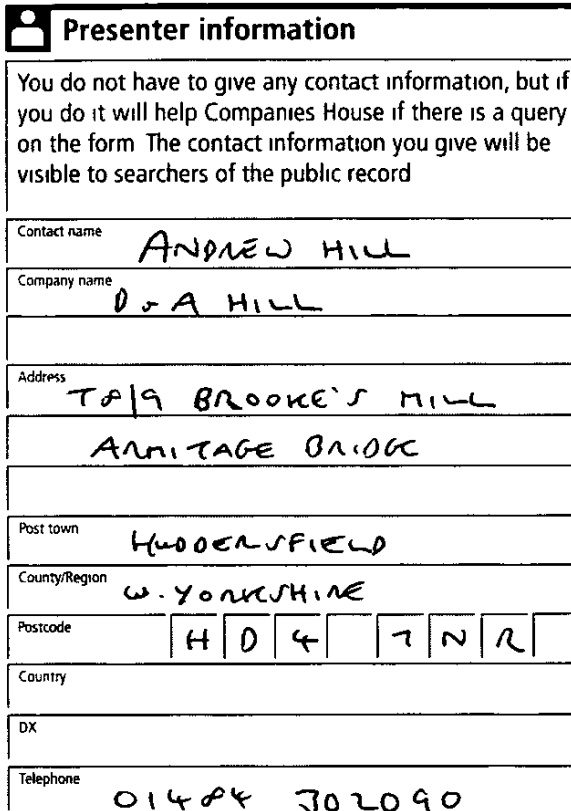 Presenter information
You do not have to give any contact information, but if
you do it will help Companies House if there is a query
on the form The contact information you give will be
visible to searchers of the public record
Contact name
ANDREW HILL
Company name
D & A HILL
Address
T8/9 BROOKE'S MILL
ARMITAGE BRIDGE
Post town
HUDDERSFIELD
County/Region
W. YORKSHIRE
Postcode
HD4 7NR
Country
DX
Telephone
01484 302090